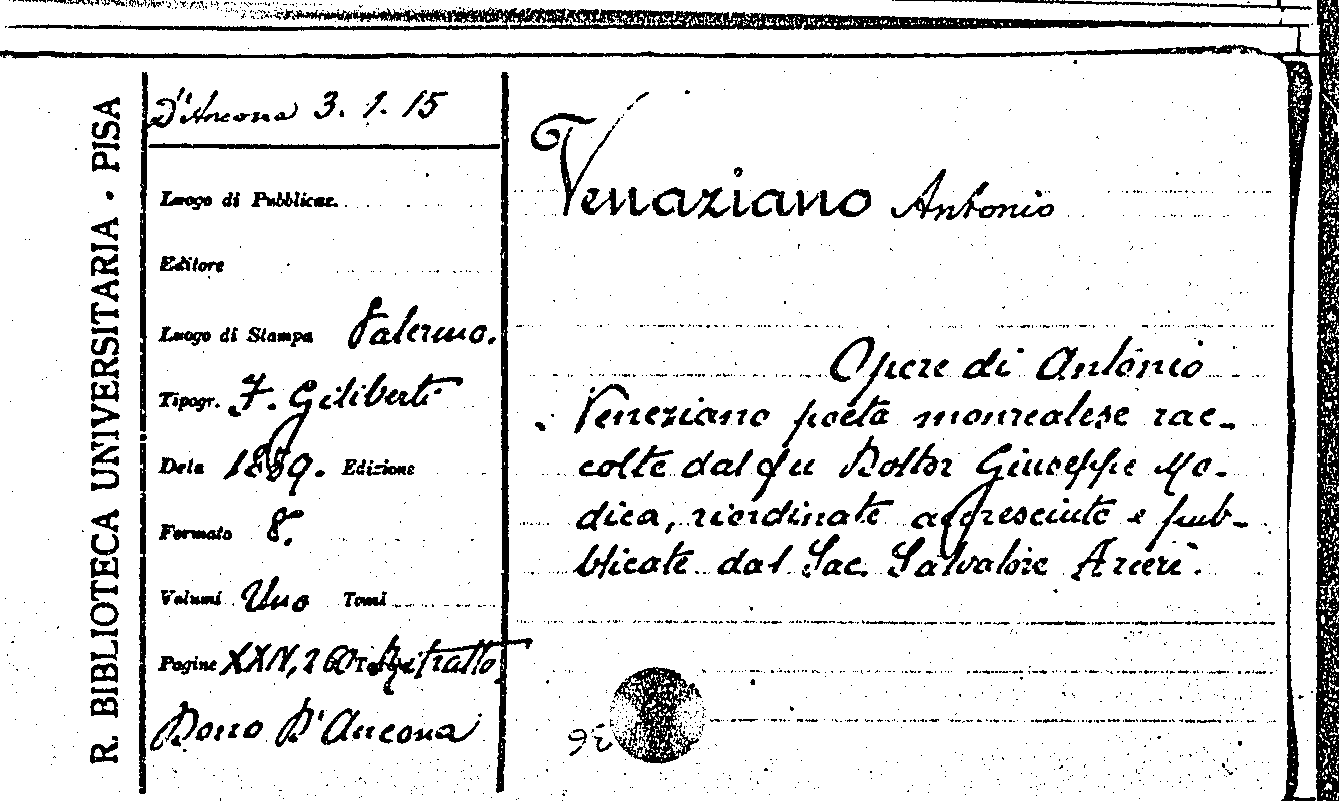 R. BIBLIOTECA UNIVERSITARIA · PISA
D'Ancona 3. 1. 15
Luogo di Pubblicaz.
Editore
Luogo di Stampa Palermo.
Tipogr. F. Giliberti
Data 1859. Edizione
Formato 8.
Volumi Uno Tomi
Pagine XXIV, 260 Ritratto.
Dono D'Ancona
Venaziano Antonio
Opere di Antonio
Veneziano poeta monrealese rac-
colte dal fu Dottor Giuseppe Mo-
dica, riordinate aggresciute e pub-
blicate dal Sac. Salvatore Arceri.